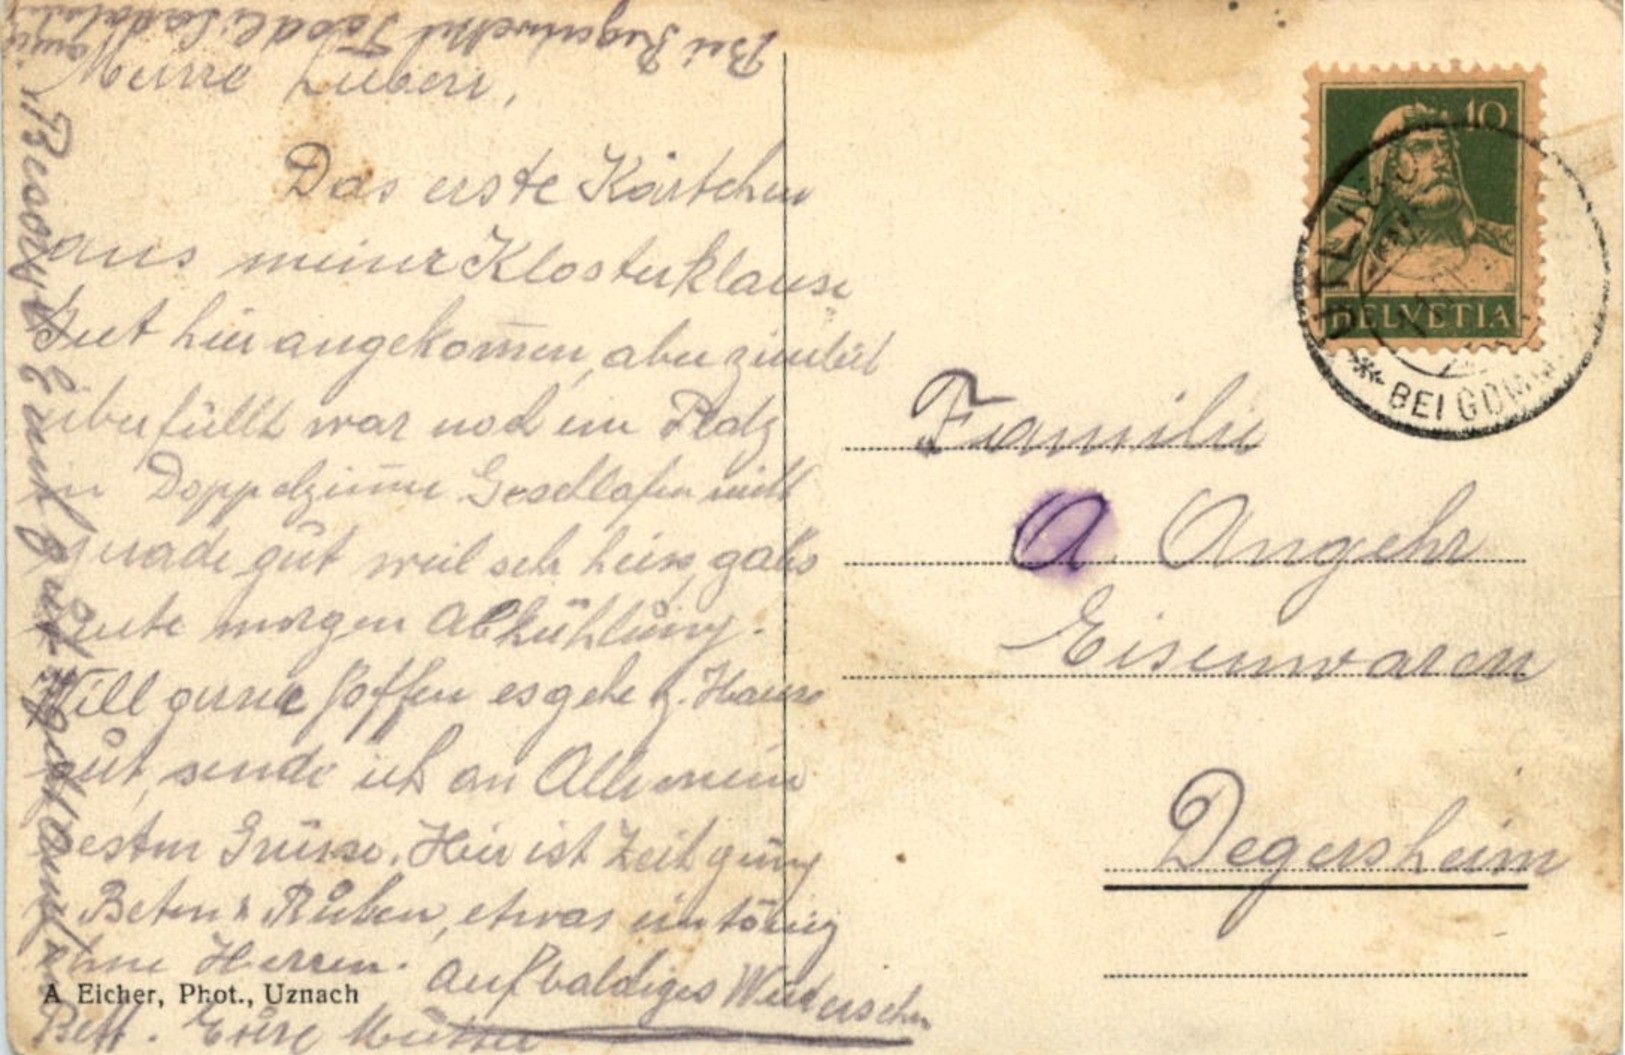 Meine Lieben,
Das erste Kärtchen
aus meiner Klosterklause
Gut hier angekommen, aber ziemlich
überfüllt war noch ein Platz
im Doppelzimmer Geschlafen nicht
gerade gut weil sehr heiss, gabs
heute morgen Abkühlung.
Will gerne hoffen es gehe z. Hause
gut, sende ich an Alle meine
besten Grüsse. Hier ist Zeit genug
z. Beten & Rüben, etwas eintönig
ohne Herren. Auf baldiges Wiedersehn
Eure Mutter
Bei Regenwetter
gut
A Eicher, Phot., Uznach
10
HELVETIA
BEI GOMM
Familie
A. Angehr
Eisenwaren
Degersheim